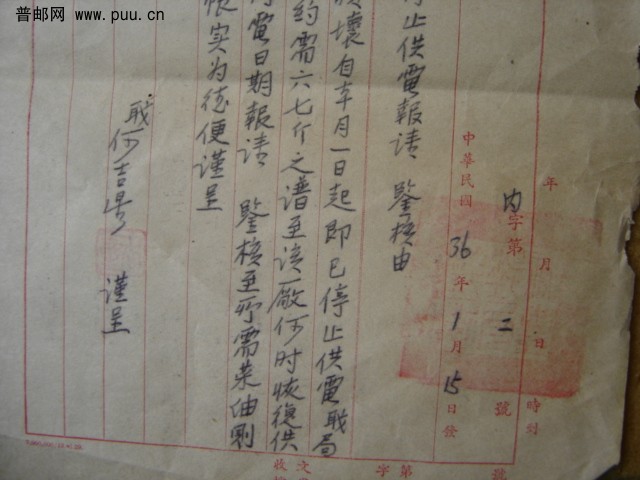 普邮网 www.puu.cn
年 月 日 時刻
内字第 二 號
中華民國 36 年 1 月 15 日發
停止供電報请 鑒核由
壞自本年月一日起即已停止供電職局
约需六七斤之谱至该厰何时恢復供
電日期報请 鑒核至所需菜油剩
实为德便谨呈
職何吉 谨呈
第 號
字
文
收